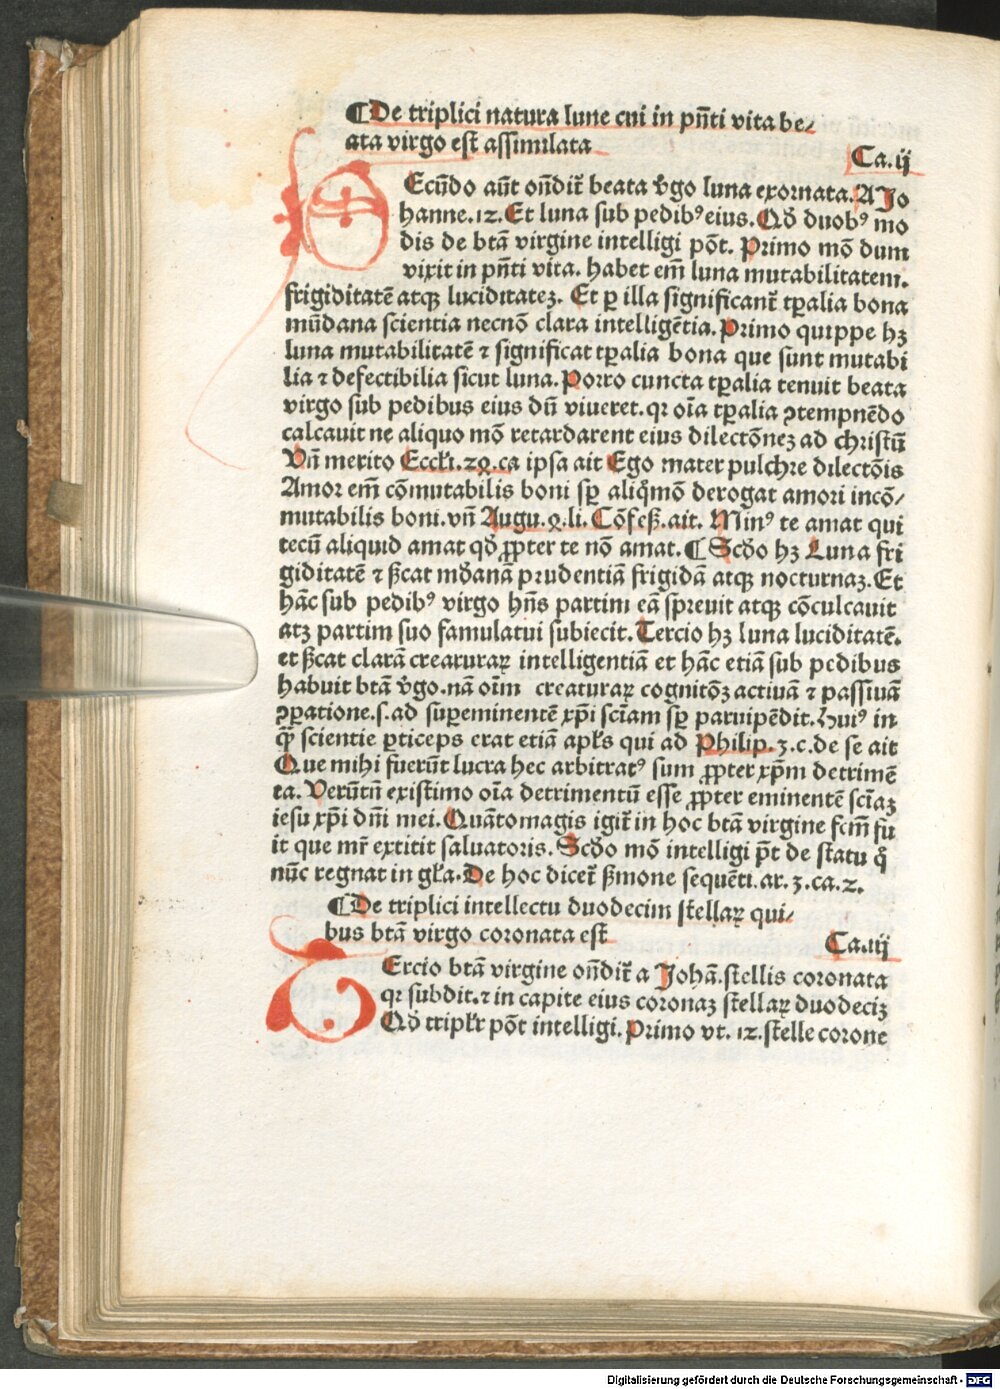 ¶De triplici natura lune cui in pn̄ti vita be/
ata virgo est assimilata
Ca.ij
SEcūdo aūt ondit̄ beata v̄go luna exornata. A Jo
hanne.12. Et luna sub pedibꝰ eius. Qd̄ duobꝰ mo
dis de btā virgine intelligi pōt. Primo mō dum
vixit in pn̄ti vita. habet em̄ luna mutabilitatem.
frigiditatē atqꝫ luciditateꝫ. Et ꝑ illa significant̄ tꝑalia bona
mūdana scientia necnō clara intelligētia. Primo quippe hꝫ
luna mutabilitatē ⁊ significat tꝑalia bona que sunt mutabi
lia ⁊ defectibilia sicut luna. Porro cuncta tꝑalia tenuit beata
virgo sub pedibus eius dū viueret. qꝛ oīa tꝑalia ꝯtempnēdo
calcauit ne aliquo mō retardarent eius dilectōneꝫ ad christū
Vn̄ merito Eccłi.24.ca ipsa ait Ego mater pulchre dilectōis
Amor em̄ cōmutabilis boni sꝑ aliq̄mō derogat amori incō/
mutabilis boni. vn̄ Augu.4.li. Cōfeß. ait. Minꝰ te amat qui
tecū aliquid amat qd̄ ꝓpter te nō amat. ¶ Scd̄o hꝫ Luna fri
giditatē ⁊ ßcat md̄anā prudentiā frigidā atqꝫ nocturnaꝫ. Et
hāc sub pedibꝰ virgo hn̄s partim eā spreuit atqꝫ cōculcauit
atꝫ partim suo famulatui subiecit. Tercio hꝫ luna luciditatē.
et ßcat clarā creaturaꝝ intelligentiā et hāc etiā sub pedibus
habuit btā v̄go. nā oīm creaturaꝝ cognitōꝫ actiuā ⁊ passiuā
ꝯꝑatione.s. ad suꝑeminentē xp̄i scīam sꝑ paruipēdit. Huiꝰ in
q̄ꝫ scientie ꝑticeps erat etiā apłs qui ad Philip.3.c. de se ait
Que mihi fuerūt lucra hec arbitratꝰ sum ꝓpter xp̄m detrimē
ta. Verūtn̄ existimo oīa detrimentū esse ꝓpter eminentē scīaꝫ
iesu xp̄i dn̄i mei. Quātomagis igit̄ in hoc btā virgine fcm̄ fu
it que mr̄ extitit saluatoris. Scd̄o mō intelligi pt̄ de statu q̄
nūc regnat in gła. De hoc dicet̄ ßmone sequēti. ar.3.ca.2.
¶De triplici intellectu duodecim stellaꝝ qui/
bus btā virgo coronata est
Ca.iij
TErcio btā virgine ondit̄ a Johā. stellis coronata
qꝛ subdit. ⁊ in capite eius coronaꝫ stellaꝝ duodeciꝫ
Qd̄ tripłr pōt intelligi. Primo vt. 12. stelle corone
Digitalisierung gefördert durch die Deutsche Forschungsgemeinschaft - DFG